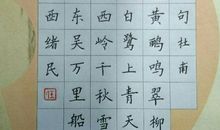 句杜甫
黄鹂鸣翠柳
白鹭上青天
西岭千秋雪
东吴万里船
西绪民